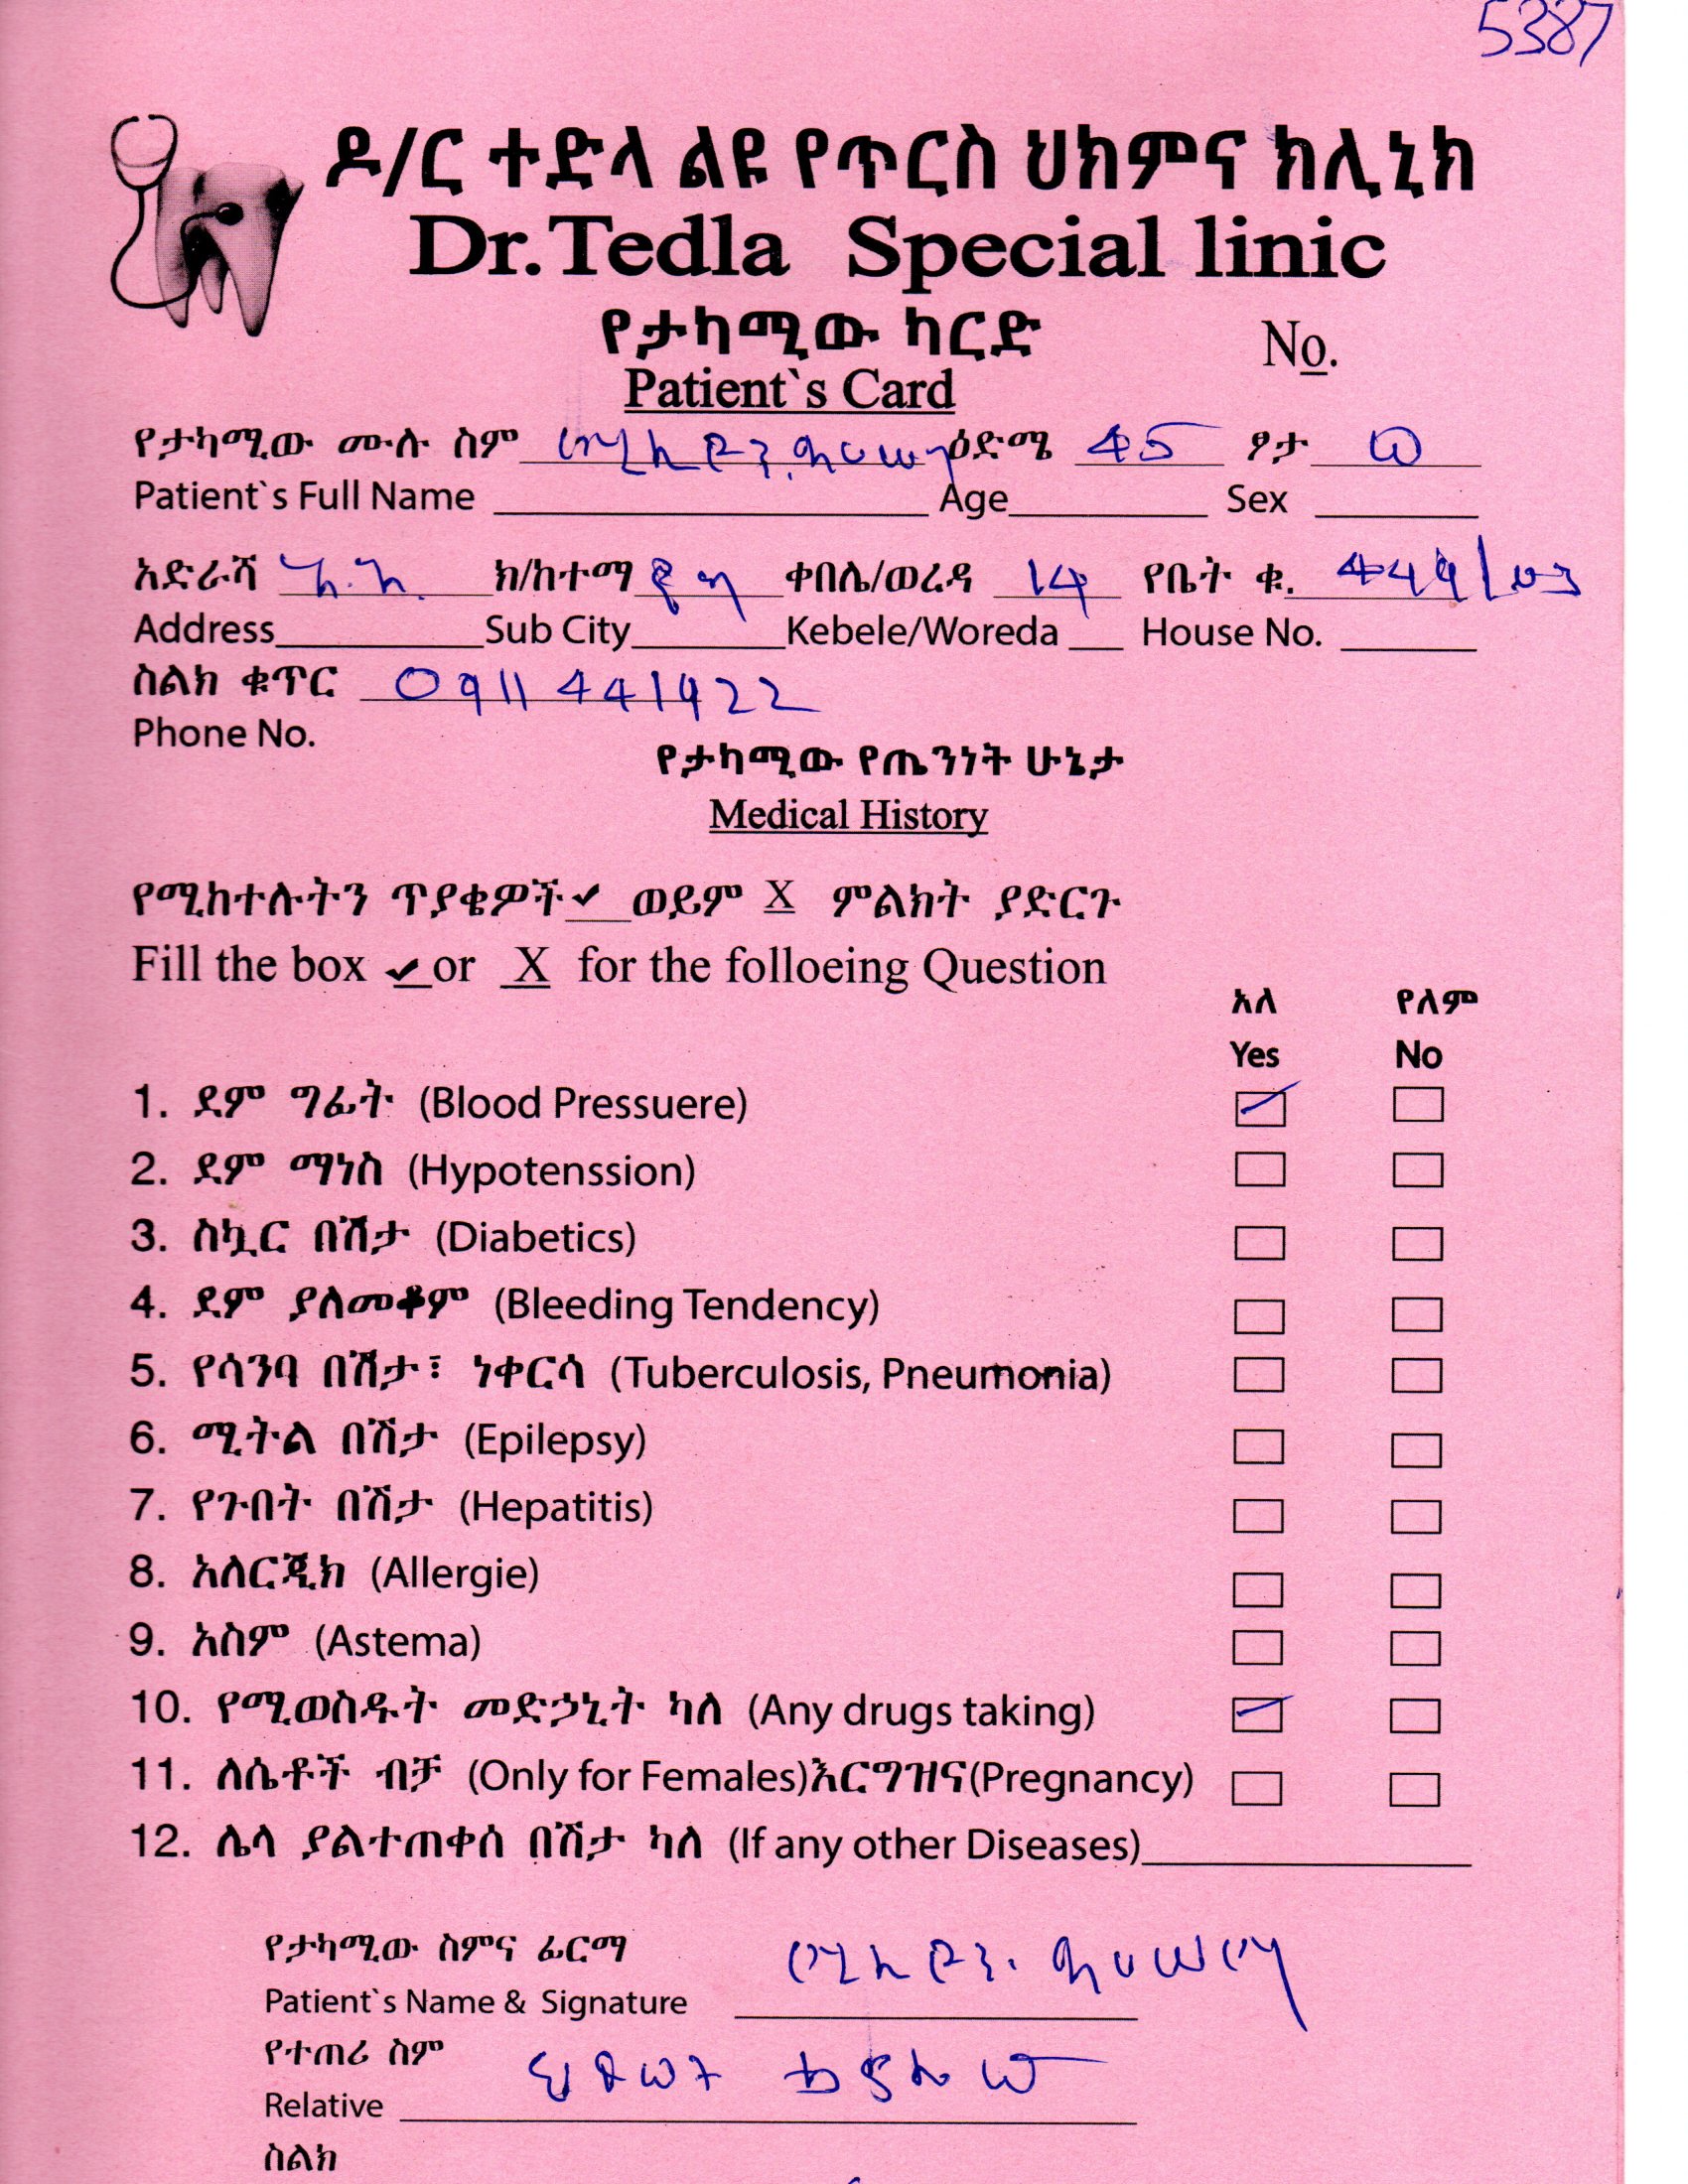 5387
ዶ/ር ተድላ ልዩ የጥርስ ህክምና ክሊኒክ
Dr.Tedla Special linic
የታካሚው ካርድ
No.
Patient`s Card
የታካሚው ሙሉ ስም ዕድሜ 45 ፆታ ወ
Patient`s Full Name Age Sex
አድራሻ አ.አ. ክ/ከተማ ቀበሌ/ወረዳ 14 የቤት ቁ.
Address Sub City Kebele/Woreda House No.
ስልክ ቁጥር 0911441922
Phone No.
የታካሚው የጤንነት ሁኔታ
Medical History
የሚከተሉትን ጥያቄዎች ✓ ወይም X ምልክት ያድርጉ
Fill the box ✓ or X for the folloeing Question
አለ የለም
Yes No
1. ደም ግፊት (Blood Pressuere) ✓
2. ደም ማነስ (Hypotenssion)
3. ስኳር በሽታ (Diabetics)
4. ደም ያለመቆም (Bleeding Tendency)
5. የሳንባ በሽታ፣ ነቀርሳ (Tuberculosis, Pneumonia)
6. ሚትል በሽታ (Epilepsy)
7. የጉበት በሽታ (Hepatitis)
8. አለርጂክ (Allergie)
9. አስም (Astema)
10. የሚወስዱት መድኃኒት ካለ (Any drugs taking) ✓
11. ለሴቶች ብቻ (Only for Females)እርግዝና(Pregnancy)
12. ሌላ ያልተጠቀሰ በሽታ ካለ (If any other Diseases)
የታካሚው ስምና ፊርማ
Patient`s Name & Signature
የተጠሪ ስም
Relative
ስልክ